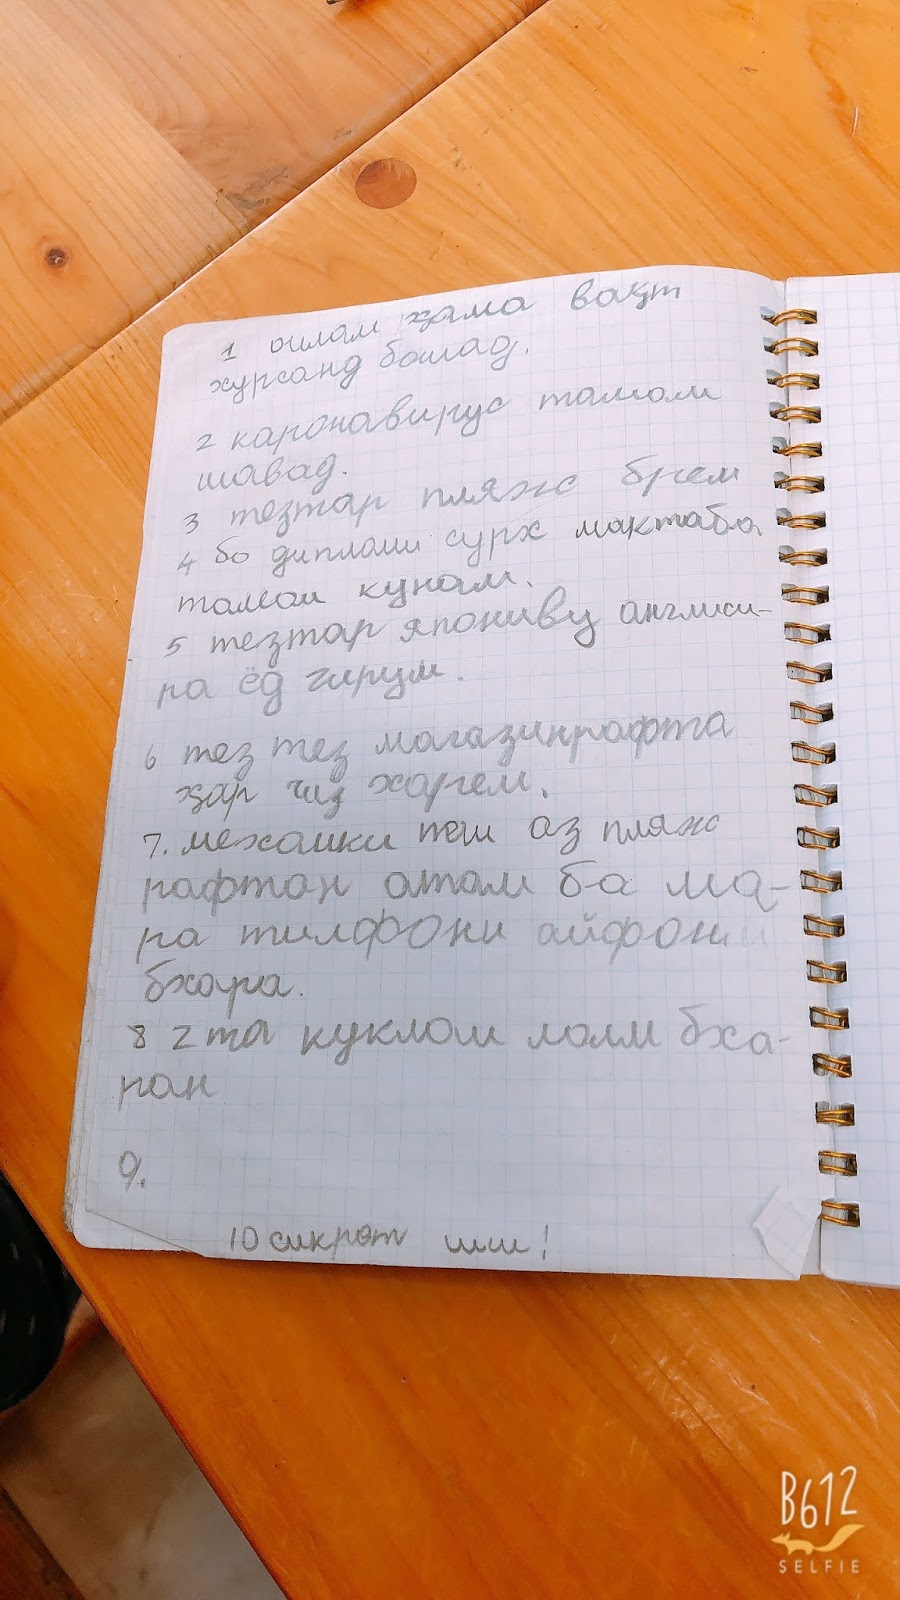 1 оилам ҳама вақт
хурсанд бошад.
2 каронавирус тамом
шавад.
3 тезтар пляж брем
4 бо дипломи сурх мактаба
тамом кунам.
5 тезтар япониву англиси-
ра ёд гирум.
6 тез тез магазинрафта
ҳар чиз харем.
7. мехоҳики пеш аз пляж
рафтан атам ба ма-
ра тилфони айфони
бхара.
8 2та куклаи лолм бха-
ран
9.
10 сикрет шш!
B612
SELFIE